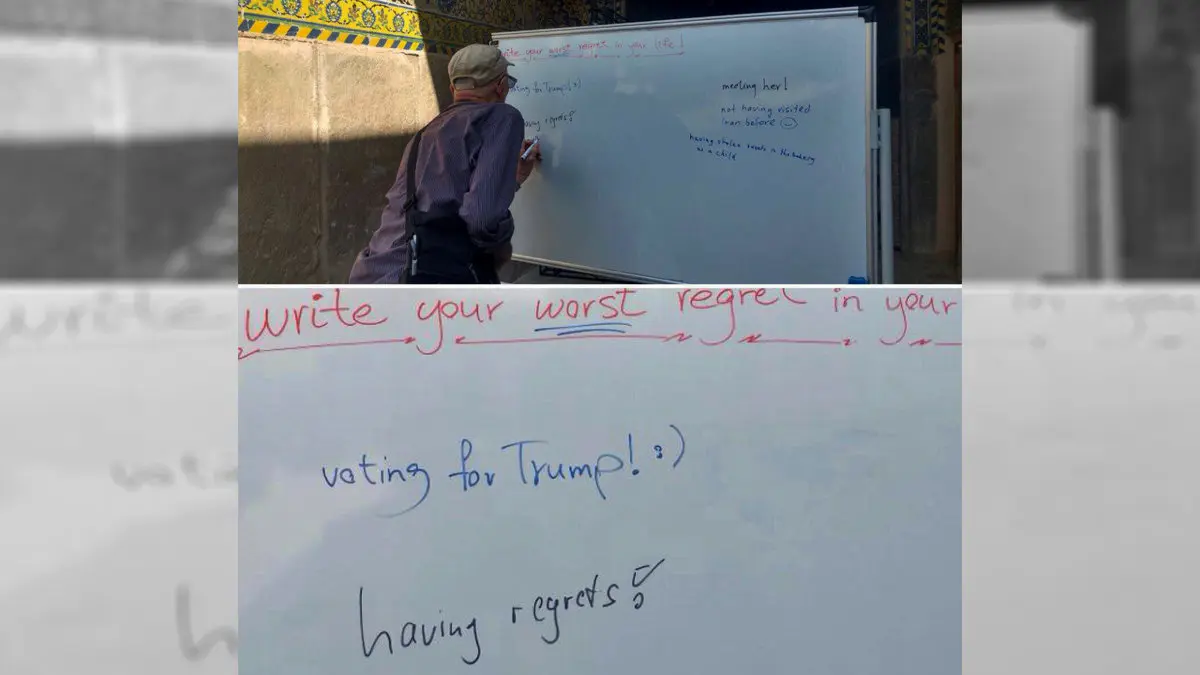 write your worst regret in your life!
voting for Trump! :)
having regrets?
meeting her!
not having visited
Iran before
having stolen
as a child
write your worst regret in your
voting for Trump! :)
having regrets?